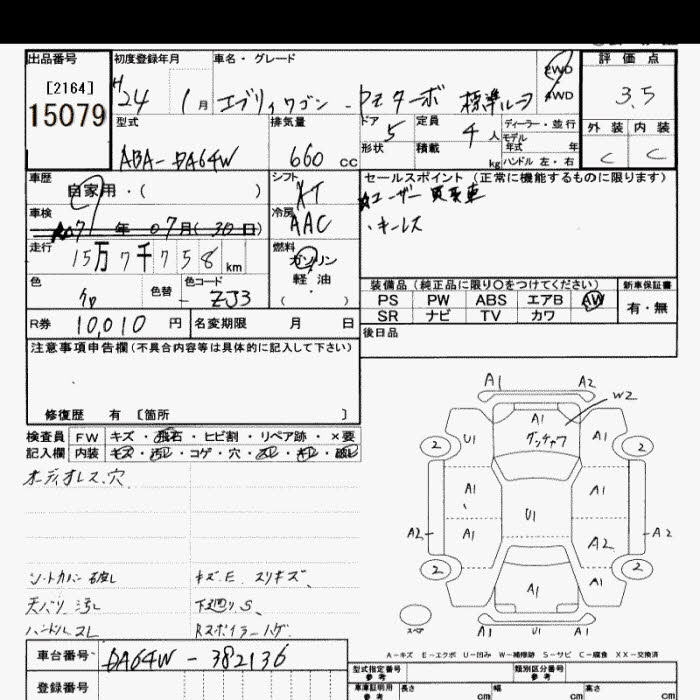 出品番号
[2164]
15079
初度登録年月
H24 1月
車名・グレード
エブリィワゴン - PZターボ 標準ルーフ
2WD
4WD
評価点
3.5
外装 内装
C C
型式
ABA-DA64W
排気量
660 cc
ドア
5
定員
4人
形状
積載
kg
ディーラー・並行
モデル
年式 年
ハンドル 左・右
車歴
自家用・( )
シフト
AT
車検
7年07月(30日)
冷房
AAC
走行
15万7千758km
燃料
ガソリン
軽・油
( )
色
色替
色コード
ZJ3
セールスポイント(正常に機能するものに限ります)
ユーザー買取車
・キーレス
装備品(純正品に限り○をつけてください)
PS PW ABS エアB AW
SR ナビ TV カワ
新車保証書
有・無
R券 10,010 円
名変期限 月 日
後日品
注意事項申告欄(不具合内容等は具体的に記入して下さい)
修復歴 有 〔箇所 〕
検査員 FW キズ・飛石・ヒビ割・リペア跡・×要
記入欄 内装 キズ・汚レ・コゲ・穴・スレ・キレ・破レ
オーディオレス、穴
シートカバー破レ
キズ、E、スリキズ、
天バリ汚レ
下廻りS、
ハンドルスレ
Rスポイラーハゲ
A1 A2
W2
A1
ゲンチャワ
U1 A1
2 2
A1 A1
U1
A2 A1 A2 A2
2 2
A1 A1
スペア
U1 A1
A-キズ E-エクボ U-凹み W-補修跡 S-サビ C-腐食 XX-交換済
車台番号 DA64W-382136
登録番号
型式指定番号
参考
類別区分番号
参考
車庫証明用
参考
長さ cm
幅 cm
高さ cm